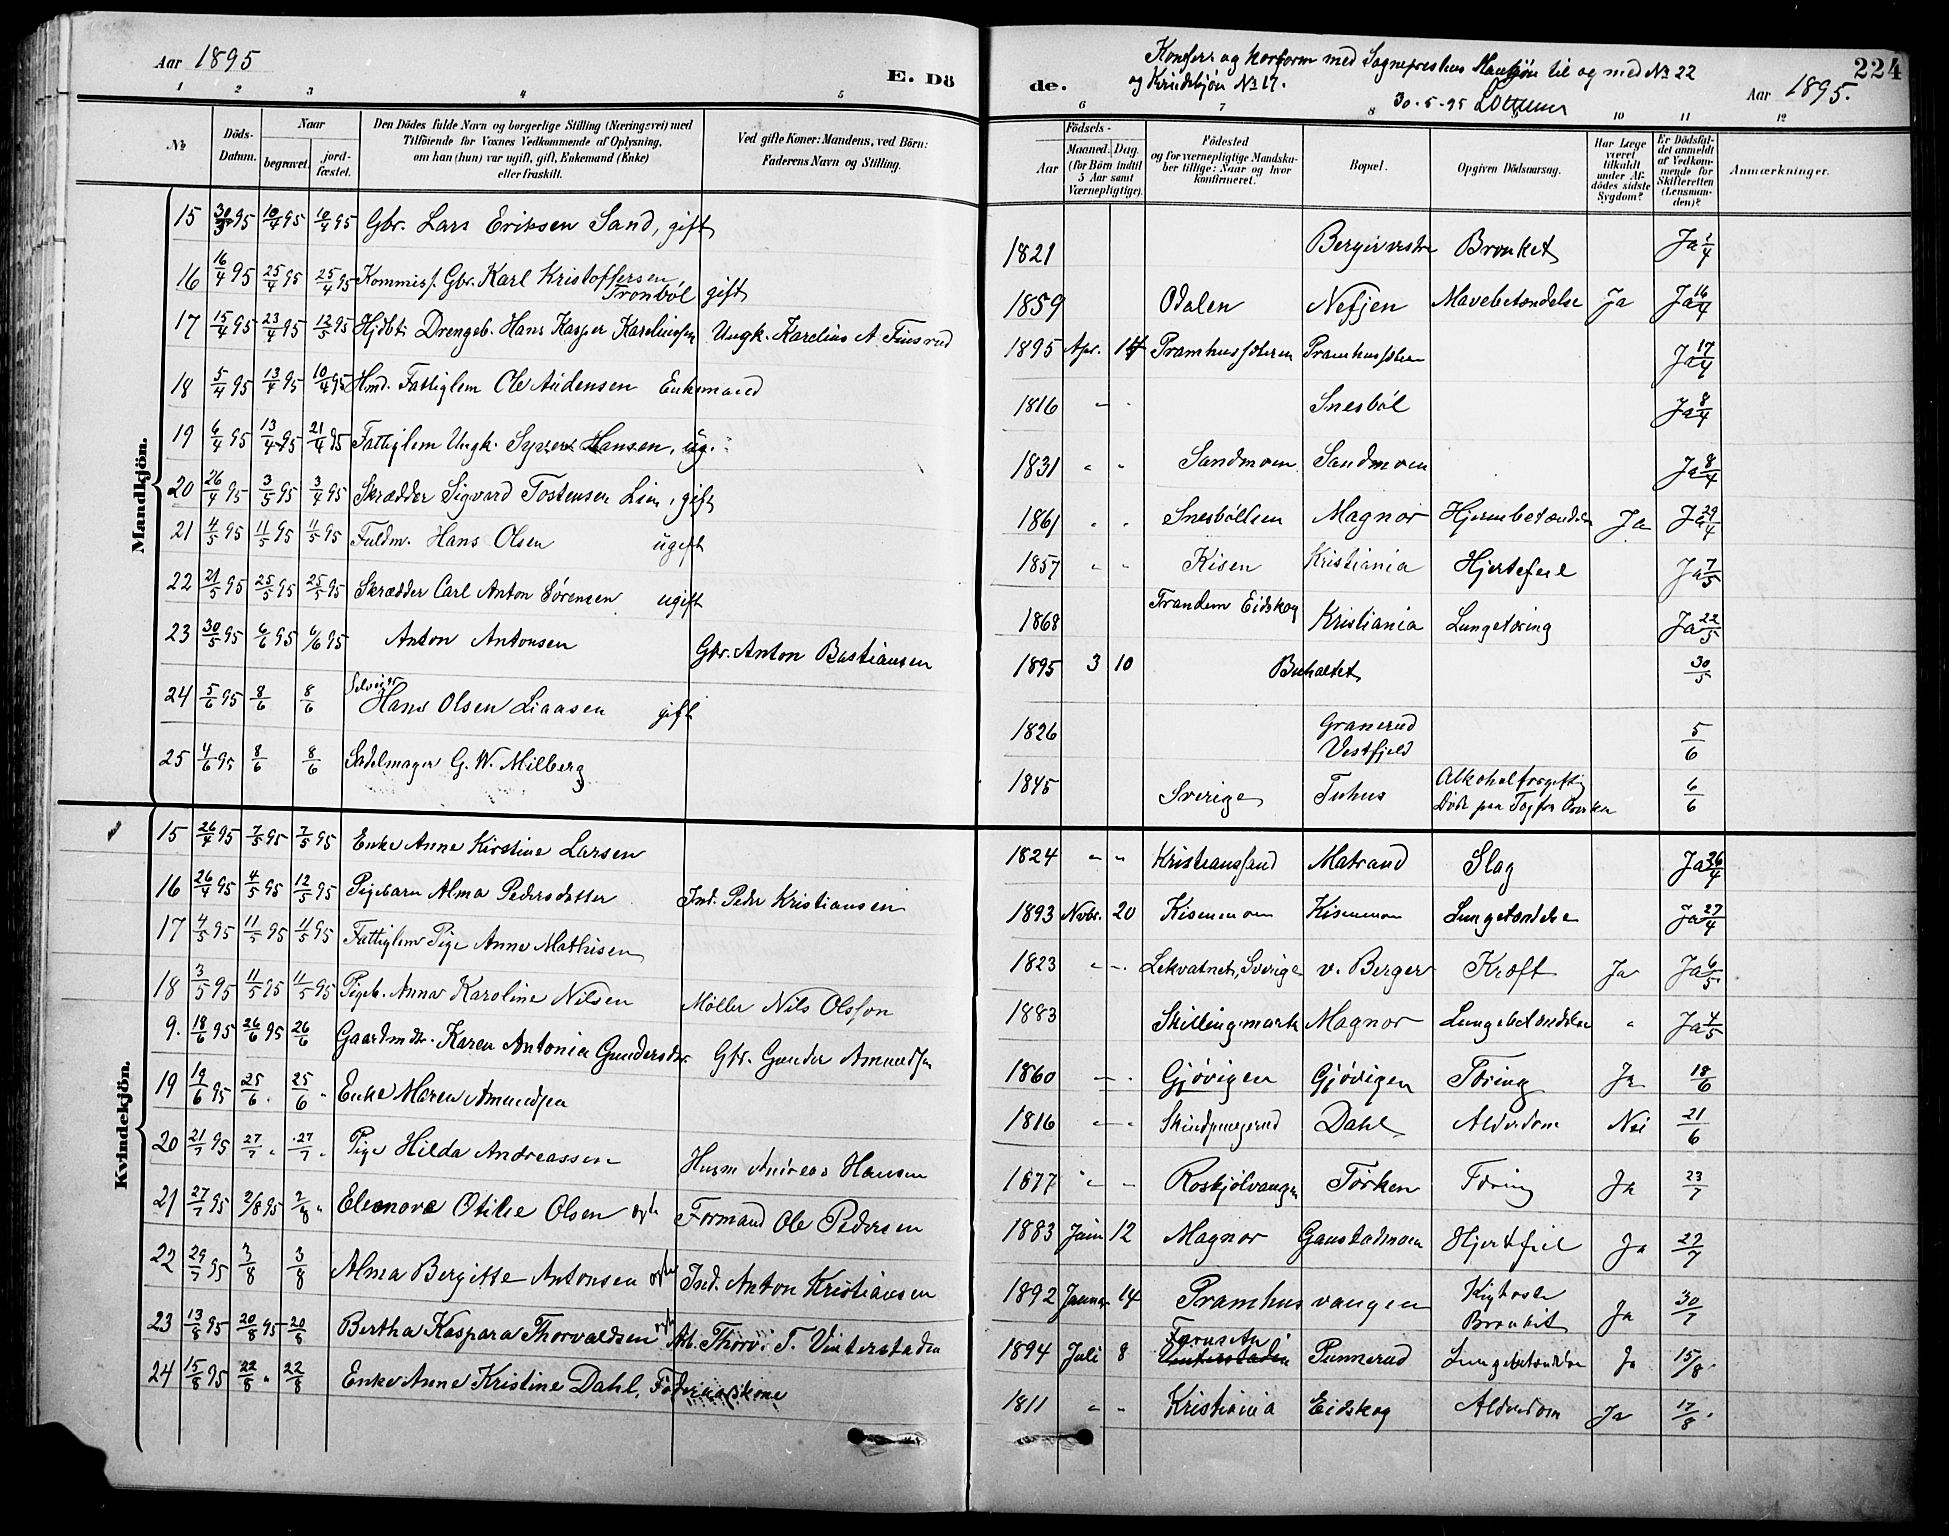 Aar 1895
E. Dö
de.
Konfer. og konform med Sognepræstens Mankjøn til og med No 22
og Kvindekjøn No 17.
30-5-95
Aar 1895.
224
1 2 3 4 5 6 7 8 10 11 12
No
Döds-Datum.
Naar
begravet.
jord-fæstet.
Den Dödes fulde Navn og borgerlige Stilling (Næringsvei) med
Tilföiende for Voxnes Vedkommende af Oplysning,
om han (hun) var ugift, gift, Enkemand (Enke)
eller fraskilt.
Ved gifte Koner: Mandens, ved Börn:
Faderens Navn og Stilling.
Födsels-
Aar
Maaned. Dag.
(for Börn indtil
5 Aar samt
Værnepligtige).
Födested
og for værnepligtige Mandska-
ber tillige: Naar og hvor
konfirmeret.
Bopæl.
Opgiven Dödsaarsag.
Har Læge
været
tilkaldt
under Af-
dödes sidste
Sygdom?
Er Dödsfal-
det anmeldt
af Vedkom-
mende for
Skifteretten
(Lensman-
den)?
Anmærkninger.
Mandkjön.
15 30/3 95 10/4 95 10/4 95 Gbr. Lars Eriksen Sand, gift 1821 Bronket Ja 2/4
16 16/4 95 25/4 95 25/4 95 Kommis f. Gbr. Karl Kristoffersen Tronbøl gift 1859 Odalen Mavebetændelse Ja Ja 16/4
17 15/4 95 23/4 95 12/5 95 Hjdbt. Drengeb. Hans Kasper Kareliussen Ungk. Karelius A. Finsrud 1895 Apr. 14 Ja 17/4
18 5/4 95 13/4 95 10/4 95 Hmd. Fattiglem Ole Audensen Enkemand 1816 " " Snesbøl Ja 8/4
19 6/4 95 13/4 95 21/4 95 Fattiglem Ungk. Syver Hansen, ug. 1831 " " Sandmoen Sandmoen Ja 8/4
20 26/4 95 3/5 95 3/4 95 Skrædder Sigvard Tostensen Lien, gift 1861 " " Magnor Hjernebetændelse Ja Ja 29/4
21 4/5 95 11/5 95 11/5 95 Fuldm. Hans Olsen ugift 1857 " " Kisen Kristiania Hjertefeil Ja 7/5
22 21/5 95 25/5 95 25/5 95 Skrædder Carl Anton Sørensen ugift 1868 Trandem Eidskog Kristiania Lungetæring Ja 22/5
23 30/5 95 6/6 95 6/6 95 Anton Antonsen Gbr. Anton Bastiansen 1895 3 10 30/5
24 5/6 95 8/6 8/6 Hans Olsen Liaasen gift 1826 Granerud Vestfjeld 5/6
25 4/6 95 8/6 8/6 Sadelmager G. W. Milberg 1845 Sverige Alkoholforgiftig 6/6
Kvindekjön.
15 26/4 95 7/5 95 7/5 95 Enke Anne Kirstine Larsen 1824 " " Kristianssand Matrand Slag Ja 26/4
16 26/4 95 4/5 95 12/5 95 Pigebarn Alma Pedersdatter Ind. Peder Kristiansen 1893 Novbr. 20 Kisenmoen Kisenmoen Lungetændelse Ja 27/4
17 4/5 95 11/5 95 11/5 95 Fattiglem Pige Anne Mathisen 1823 " " Lekvatnet, Sverige v. Berger Kræft Ja Ja 6/5
18 3/5 95 11/5 95 11/5 95 Pigeb. Anna Karoline Nilsen Møller Nils Olsson 1883 Skillingmark Magnor Lungebetændelse " Ja 4/5
9. 18/6 95 26/6 95 26/6 Gaardmdr. Karen Antonia Gundersdtr. Gbr. Gunder Amundsen 1860 " " Gjøvigen Gjøvigen Tæring Ja 18/6
19 19/6 95 25/6 " 25/6 " Enke Maren Amundsen 1816 " " Dahl Alderdom Nei 21/6
20 21/7 95 27/7 " 27/7 " Pige Hilda Andreassen Husm Andreas Hansen 1877 " " Roskjølvangen Tørken Tæring Ja 23/7
21 27/7 95 2/8 95 2/8 " Eleonore Otilie Olsen ægte Formand Ole Pedersen 1883 Juni 12 Magnor Gaustadmoen Hjertfeil Ja 27/7
22 29/7 95 3/8 3/8 Alma Bergitte Antonsen ægte Ind. Anton Kristiansen 1892 Januar 14 Pramhusvangen Kighoste Bronkit Ja 30/7
23 13/8 95 20/8 95 20/8 Bertha Kaspara Thorvaldsen ægte Arb. Thorv. T. Vinterstaden 1894 Juli 8 Vinterstaden Punnerud Lungebetændelse Ja 15/8
24 15/8 95 22/8 " 22/8 Enke Anne Kristine Dahl, Føderaadskone 1811 " " Kristiania Eidskog Alderdom Ja 17/8